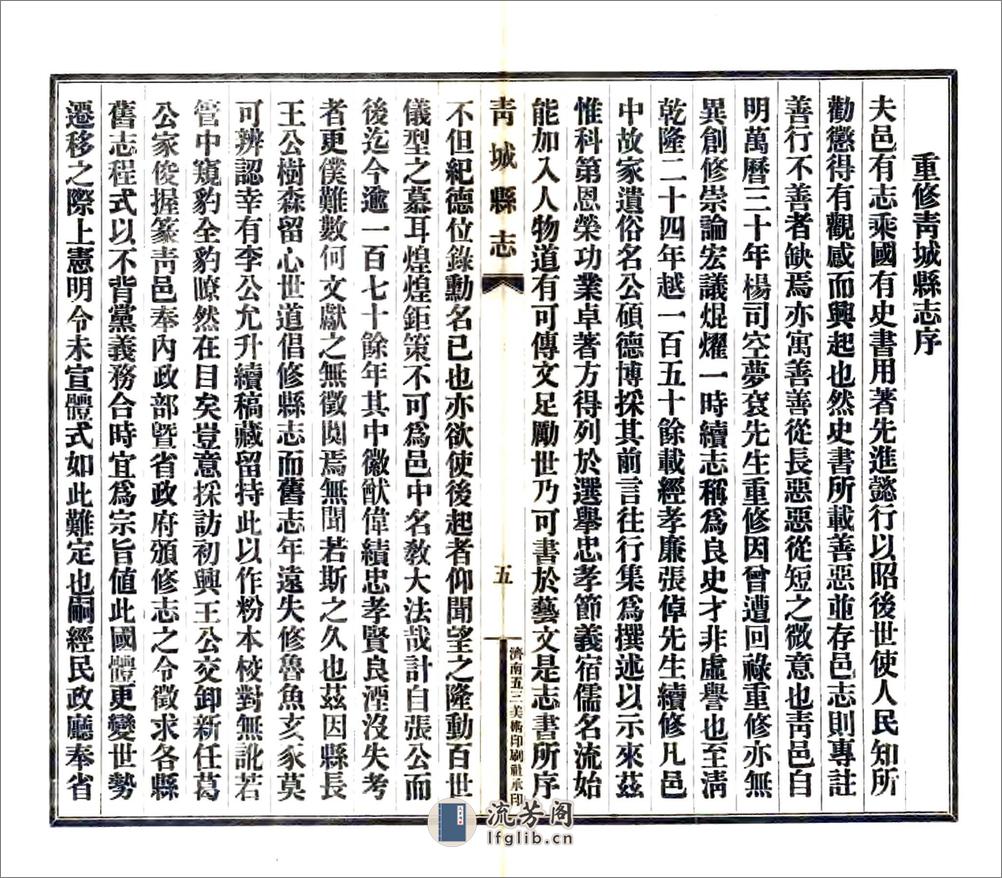 重修靑城縣志序
夫邑有志乘國有史書用著先進懿行以昭後世使人民知所
勸懲得有觀感而興起也然史書所載善惡並存邑志則專註
善行不善者缺焉亦寓善善從長惡惡從短之微意也靑邑自
明萬曆三十年楊司空夢袞先生重修因曾遭回祿重修亦無
異創修崇論宏議焜燿一時續志稱爲良史才非虛譽也至淸
乾隆二十四年越一百五十餘載經孝廉張倬先生續修凡邑
中故家遺俗名公碩德博採其前言往行集爲撰述以示來茲
惟科第恩榮功業卓著方得列於選擧忠孝節義宿儒名流始
能加入人物道有可傳文足勵世乃可書於藝文是志書所序
靑城縣志
五
濟南五三美術印刷社承印
不但紀德位錄勳名已也亦欲使後起者仰聞望之隆動百世
儀型之慕耳煌煌鉅策不可爲邑中名敎大法哉計自張公而
後迄今邁一百七十餘年其中徽猷偉績忠孝賢良湮沒失考
者更僕難數何文獻之無徵闃焉無聞若斯之久也茲因縣長
王公樹森留心世道倡修縣志而舊志年遠失修魯魚亥豕莫
可辨認幸有李公允升續稿藏留持此以作粉本校對無訛若
管中窺豹全豹瞭然在目矣豈意採訪初興王公交卸新任葛
公家俊握篆靑邑奉內政部曁省政府頒修志之令徵求各縣
舊志程式以不背黨義務合時宜爲宗旨値此國體更變世勢
遷移之際上憲明令未宣體式如此難定也嗣經民政廳奉省
流芳阁
lfglib.cn